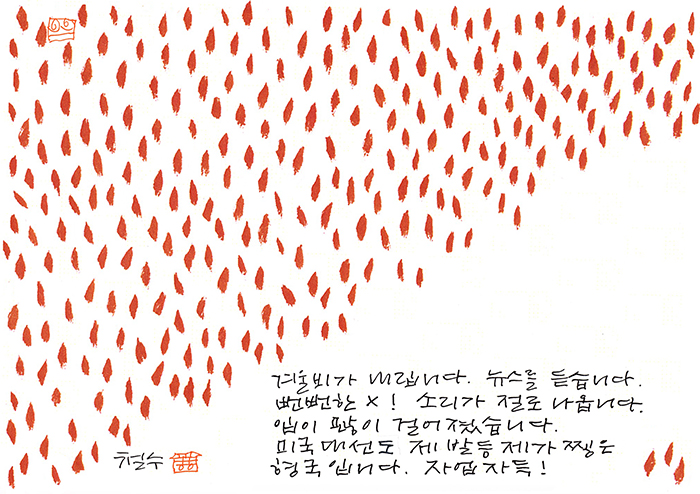 겨울비가 내립니다. 뉴스를 듣습니다.
뻔뻔한 X! 소리가 절로 나옵니다.
입이 많이 걸어졌습니다.
미국 대선도 제 발등 제가 찧은
형국입니다. 자업자득!
철수